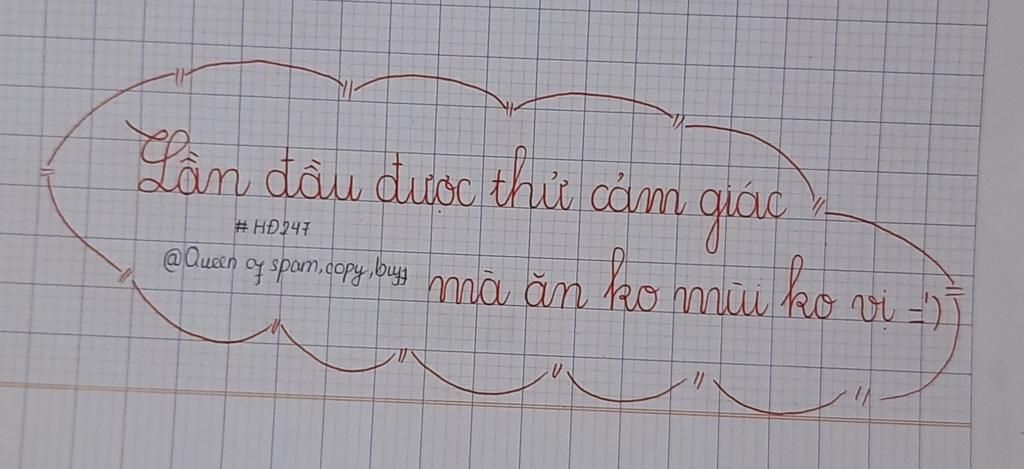 Lần đầu được thử cảm giác
#HĐ247
@Queen of spam, copy, buff
mà ăn ko mùi ko vị =))